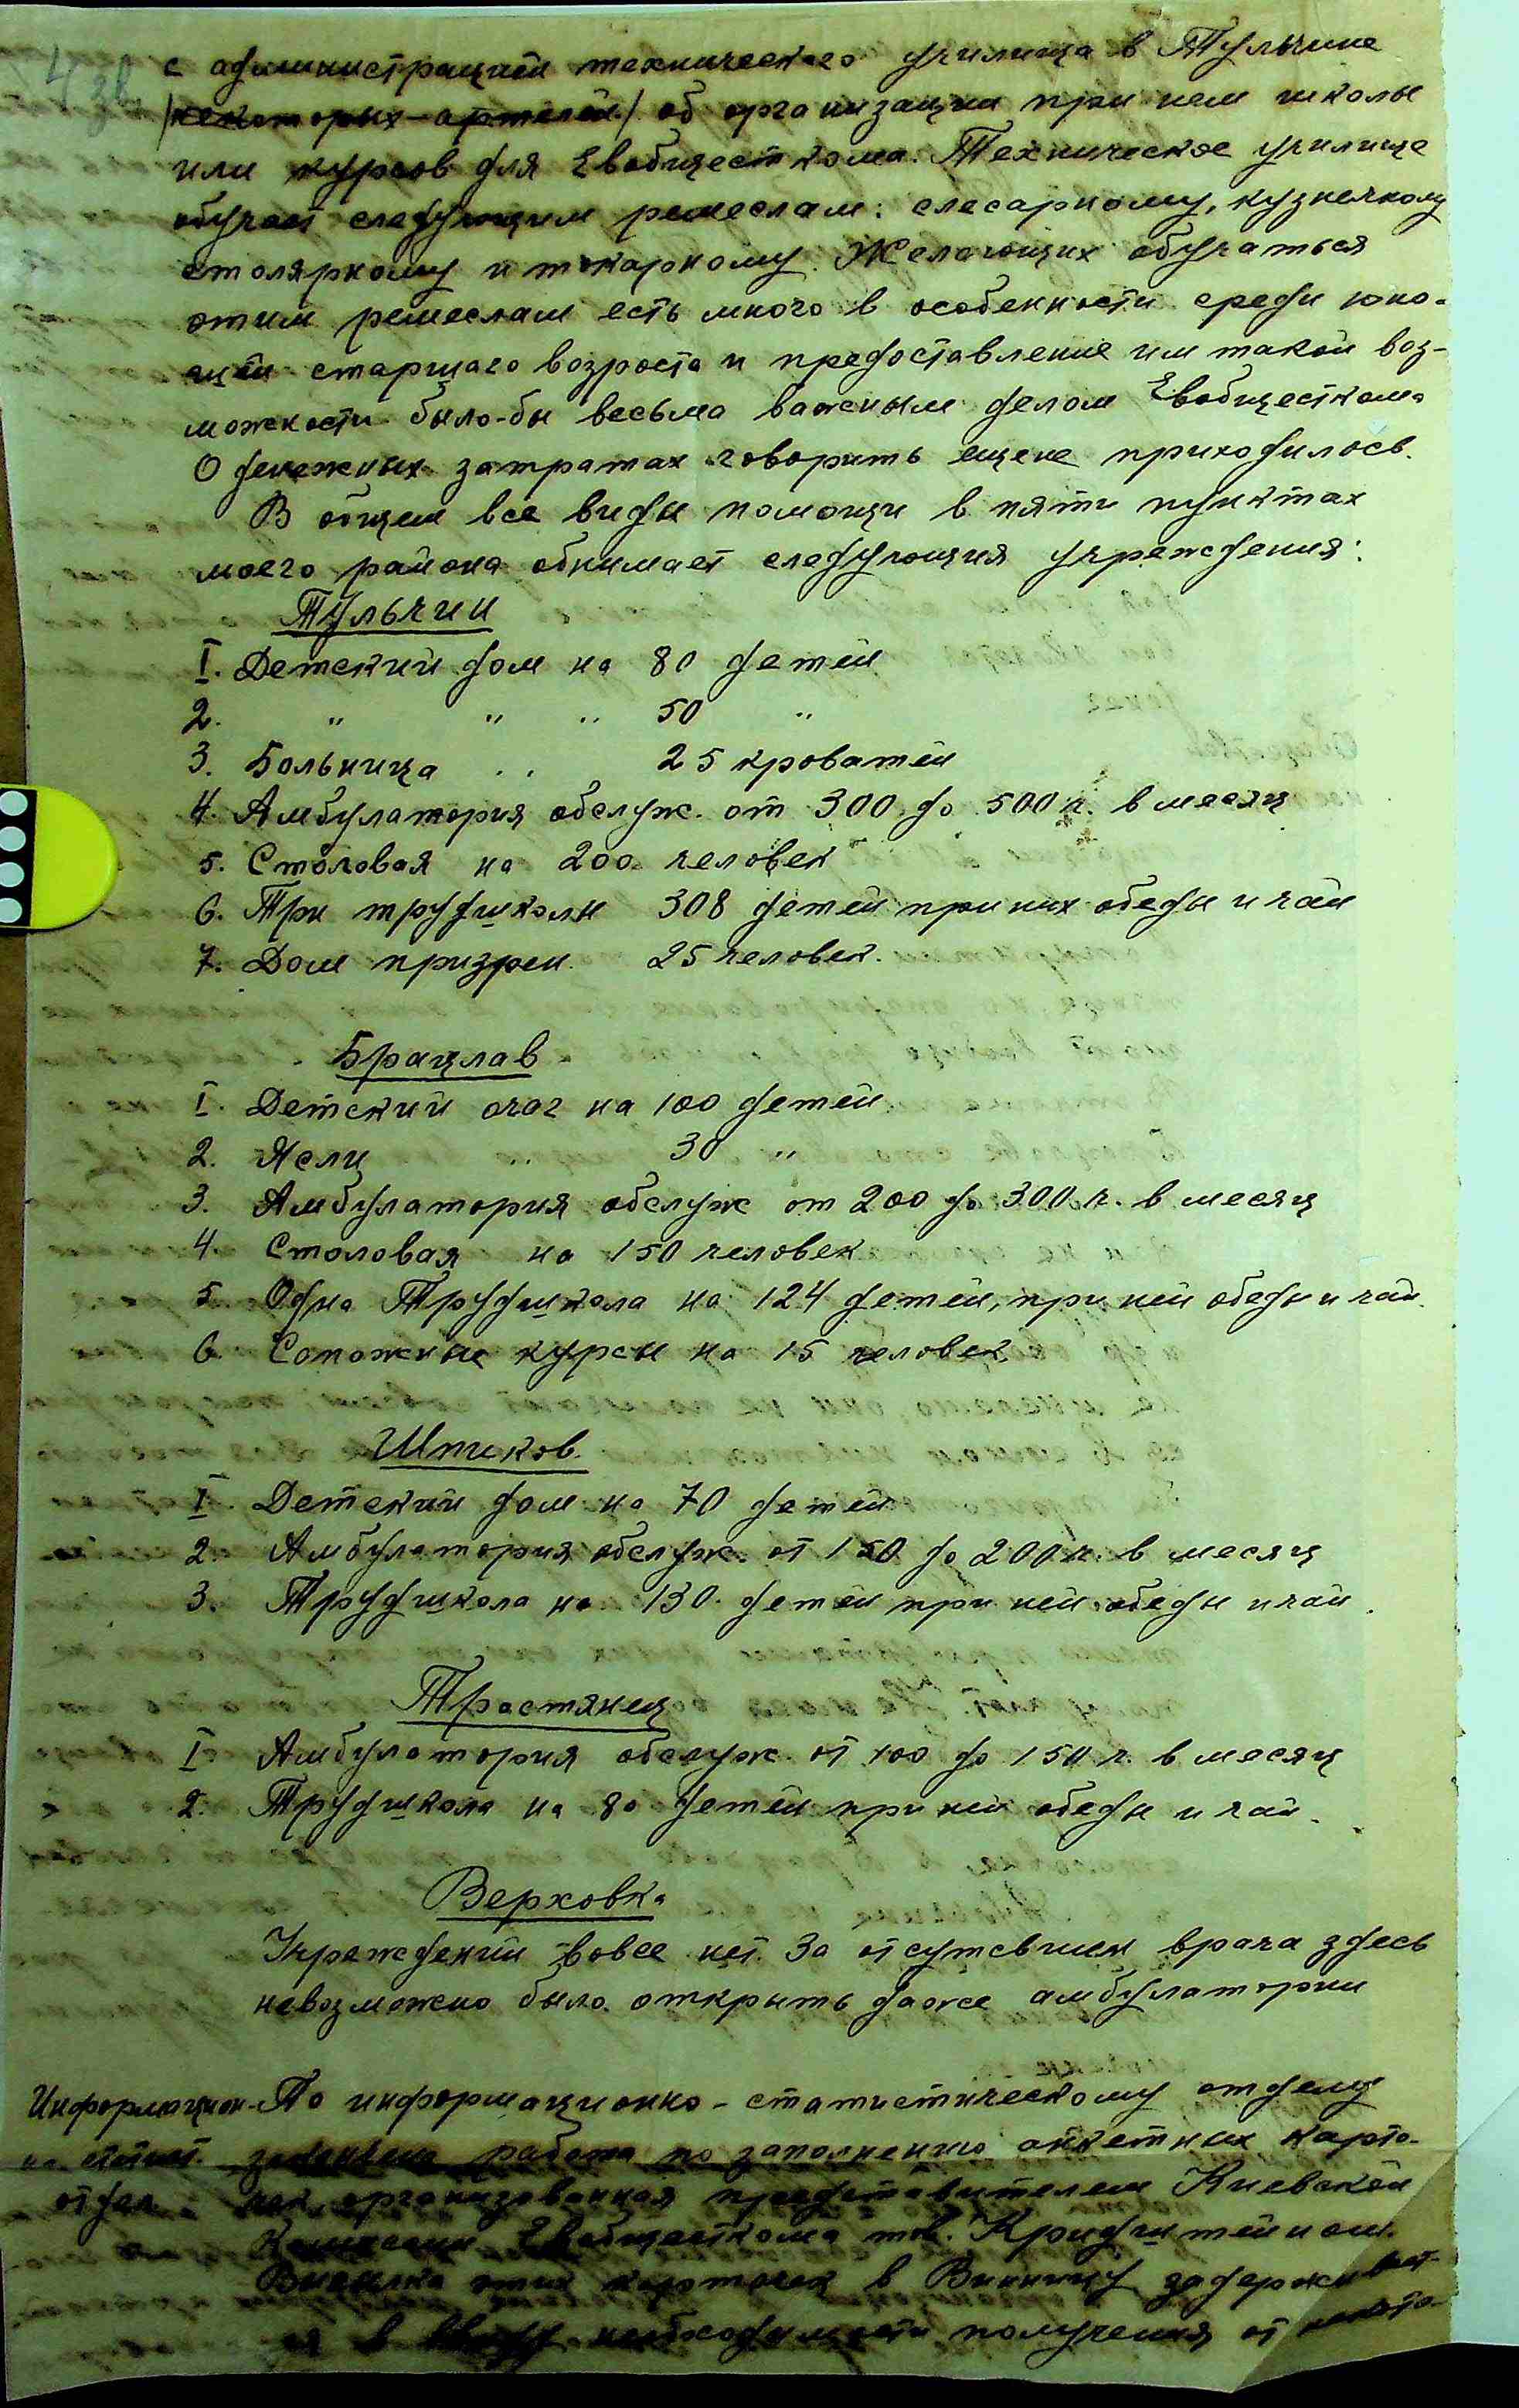 с администрацией технического училища в Тульчине
/некоторых артелей/ об организации при нем школы
или курсов для Евобщесткома. Техническое училище
обучает следующим ремеслам: слесарному, кузнечному
столярному и токарному. Желающих обучаться
этим ремеслам есть много в особенности среди юно-
шей старшаго возроста и предоставление им такой воз-
можности было-бы весьма важным делом Евобщесткома
О денежных затратах говорить еще не приходилось.
В общем все виды помощи в пяти пунктах
моего района обнимает следующия учреждения:
Тульчин
I. Детский дом на 80 детей
2. " " " 50 "
3. Больница .. 25 кроватей
4. Амбулатория обслуж. от 300 до 500 ч. в месяц
5. Столовая на 200 человек
6. Три трудшколы 308 детей при них обеды и чай
7. Дом призрен. 25 человек.
Брацлав
I. Детский очаг на 100 детей
2. Ясли " 30 "
3. Амбулатория обслуж от 200 до 300 ч. в месяц
4. Столовая на 150 человек
5. Одна Трудшкола на 124 детей, при ней обеды и чай.
6. Сапожные курсы на 15 человек.
Шпиков.
I. Детский дом на 70 детей
2. Амбулатория обслуж. от 150 до 200 ч. в месяц
3. Трудшкола на 130 детей при ней обеды и чай.
Тростянец
I Амбулатория обслуж. от 100 до 150 ч. в месяц
2. Трудшкола на 80 детей при ней обеды и чай.
Верховка
Учреждений вовсе нет. За отсутсвием врача здесь
невозможно было открыть даже амбулатории
Информацион- По информационно-статистическому отделу
но статист. закончена работа по заполнению анкетных карто-
отдел. чек, организованная представителем Киевской
Комиссии Евобщесткома тов. Кридштейном.
Высылка этих карточек в Винницу задерживает-
ся в виду необходимости получения от